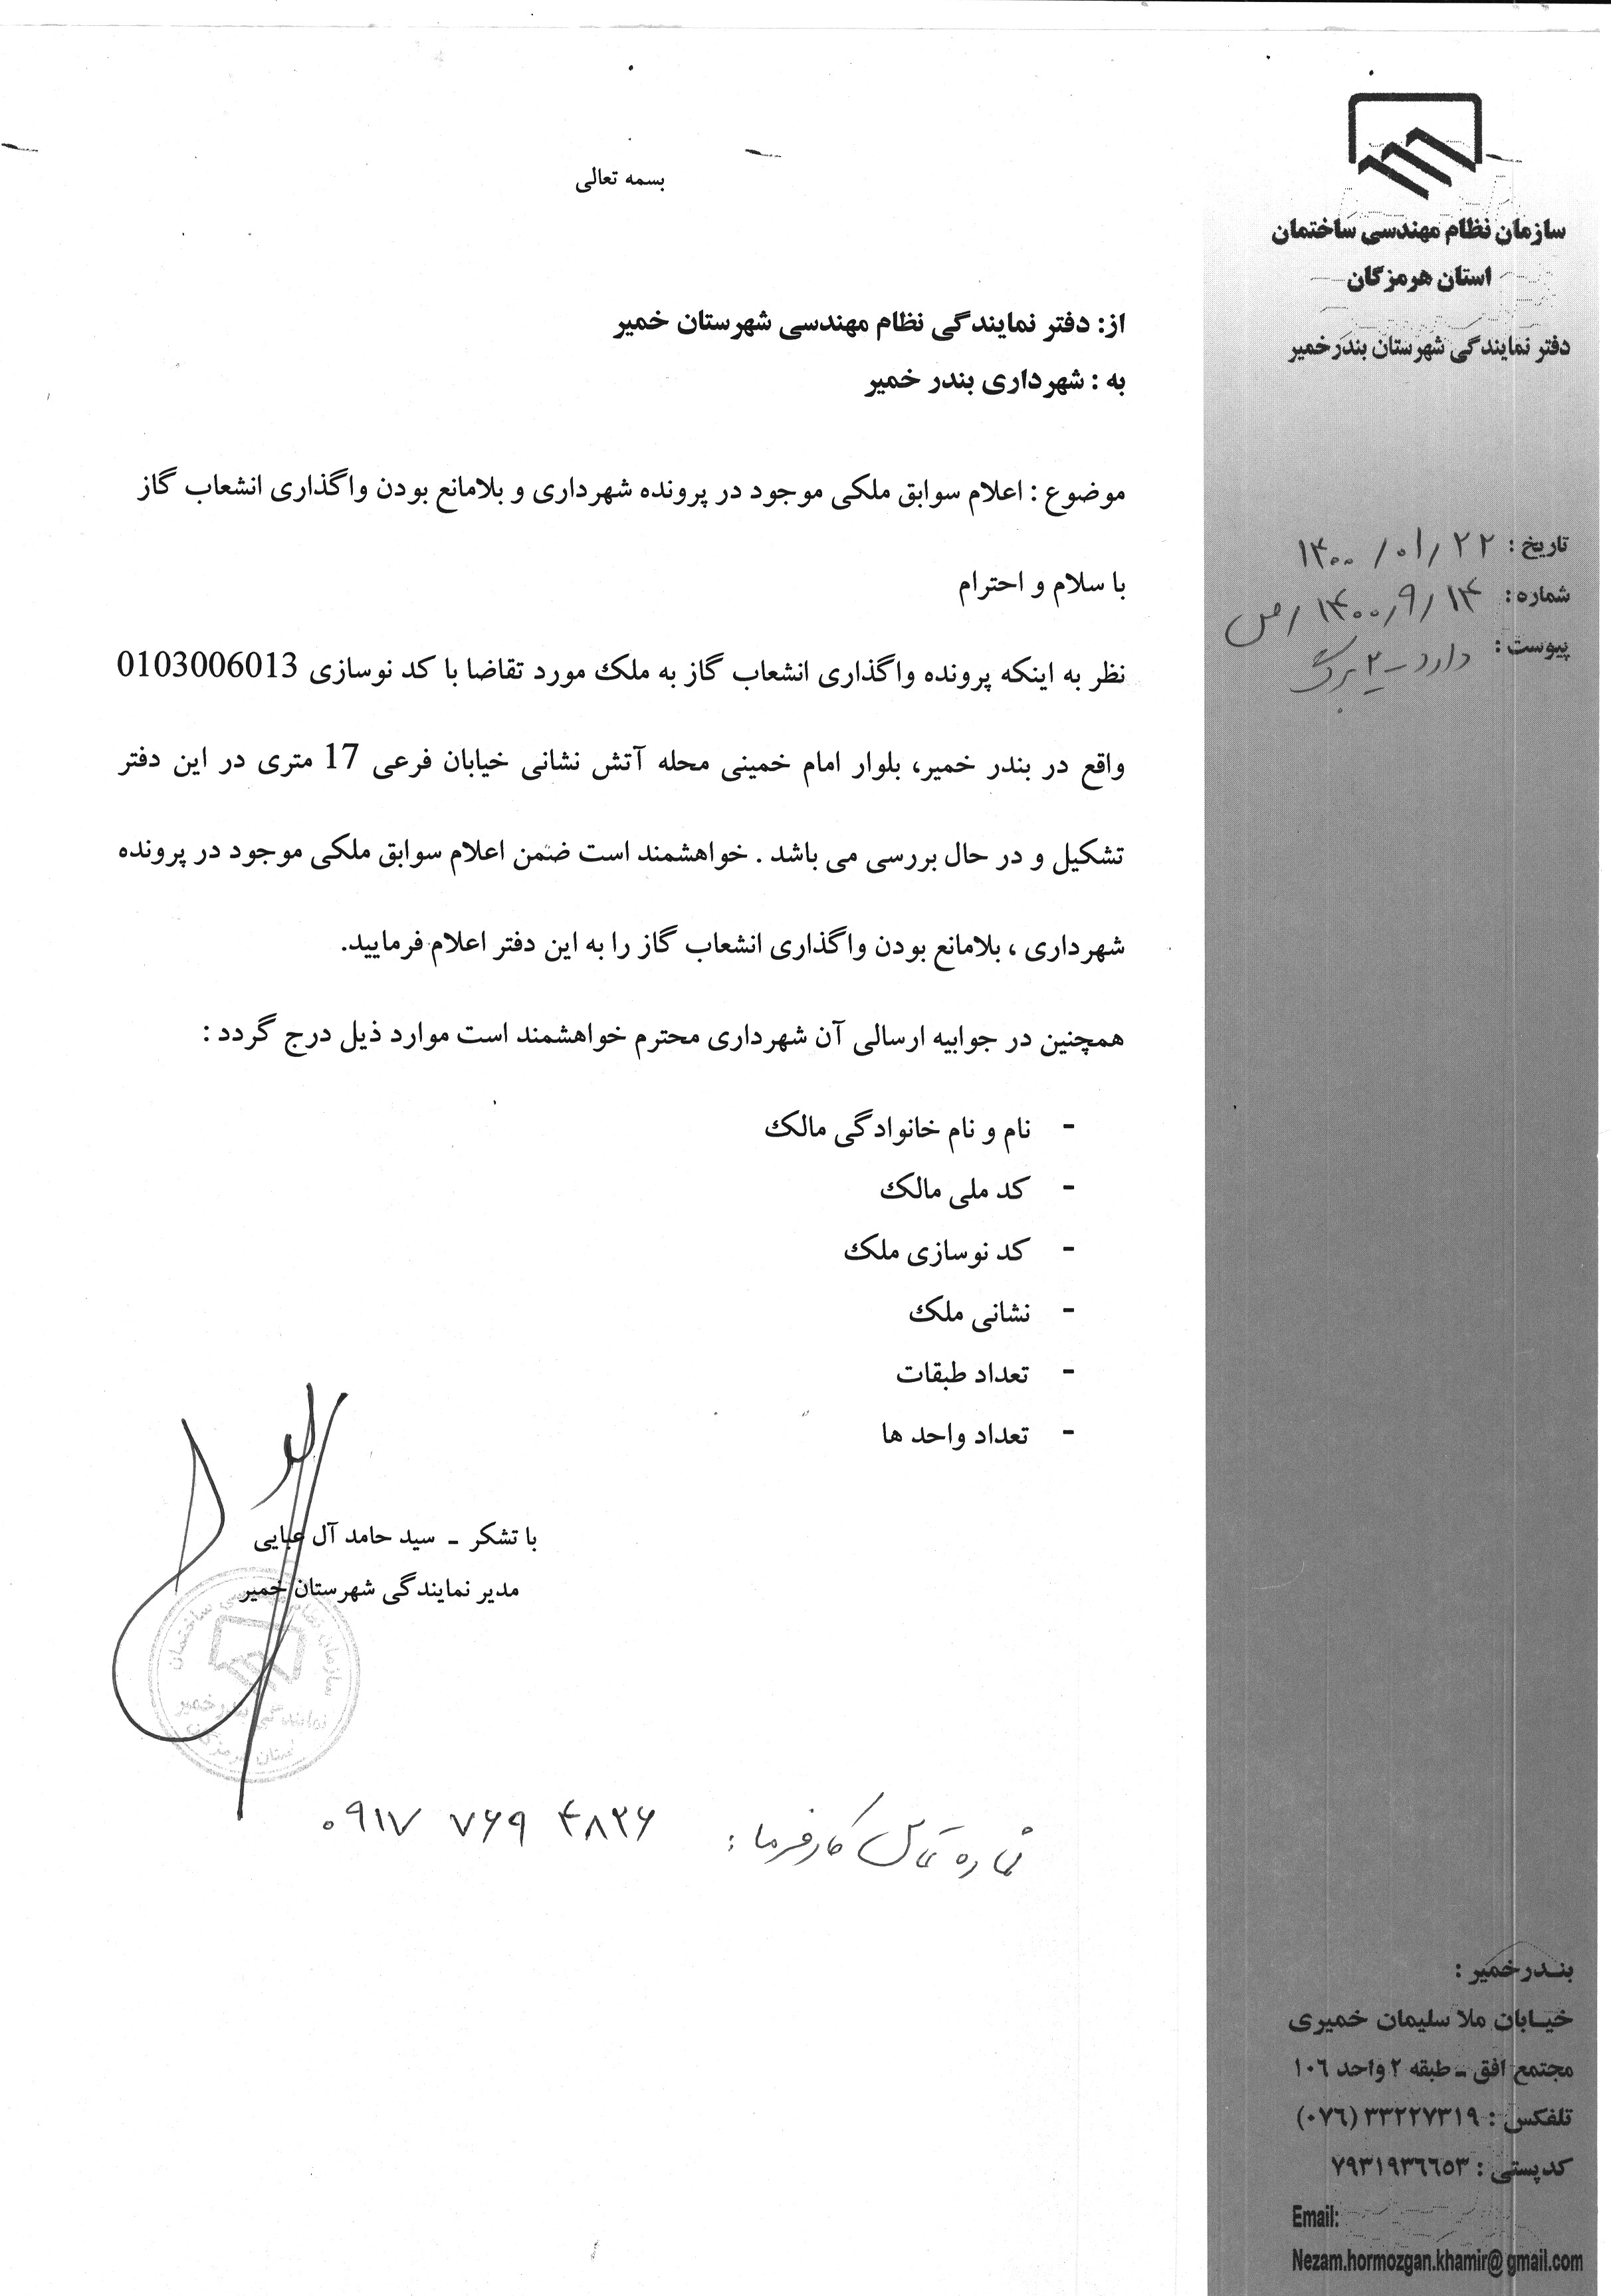 سازمان نظام مهندسی ساختمان
استان هرمزگان
دفتر نمایندگی شهرستان بندرخمیر
تاریخ : ۱۴۰۰/۰۱/۲۲
شماره : ۱۴۰۰/۹/۱۴/ص
پیوست : دارد - ۲ برگ
بسمه تعالی
از: دفتر نمایندگی نظام مهندسی شهرستان خمیر
به : شهرداری بندر خمیر
موضوع : اعلام سوابق ملکی موجود در پرونده شهرداری و بلامانع بودن واگذاری انشعاب گاز
با سلام و احترام
نظر به اینکه پرونده واگذاری انشعاب گاز به ملک مورد تقاضا با کد نوسازی 0103006013
واقع در بندر خمیر، بلوار امام خمینی محله آتش نشانی خیابان فرعی 17 متری در این دفتر
تشکیل و در حال بررسی می باشد . خواهشمند است ضمن اعلام سوابق ملکی موجود در پرونده
شهرداری ، بلامانع بودن واگذاری انشعاب گاز را به این دفتر اعلام فرمایید.
همچنین در جوابیه ارسالی آن شهرداری محترم خواهشمند است موارد ذیل درج گردد :
- نام و نام خانوادگی مالک
- کد ملی مالک
- کد نوسازی ملک
- نشانی ملک
- تعداد طبقات
- تعداد واحد ها
با تشکر - سید حامد آل عبایی
مدیر نمایندگی شهرستان خمیر
سازمان نظام مهندسی ساختمان
نمایندگی بندر خمیر
استان هرمزگان
شماره تماس کارفرما : ۰۹۱۷ ۷۶۹ ۴۸۲۶
بندرخمیر :
خیابان ملا سلیمان خمیری
مجتمع افق - طبقه ۲ واحد ۱۰۶
تلفکس : ۳۳۲۲۷۳۱۹ (۰۷۶)
کدپستی : ۷۹۳۱۹۳۶۶۵۳
Email:
Nezam.hormozgan.khamir@gmail.com